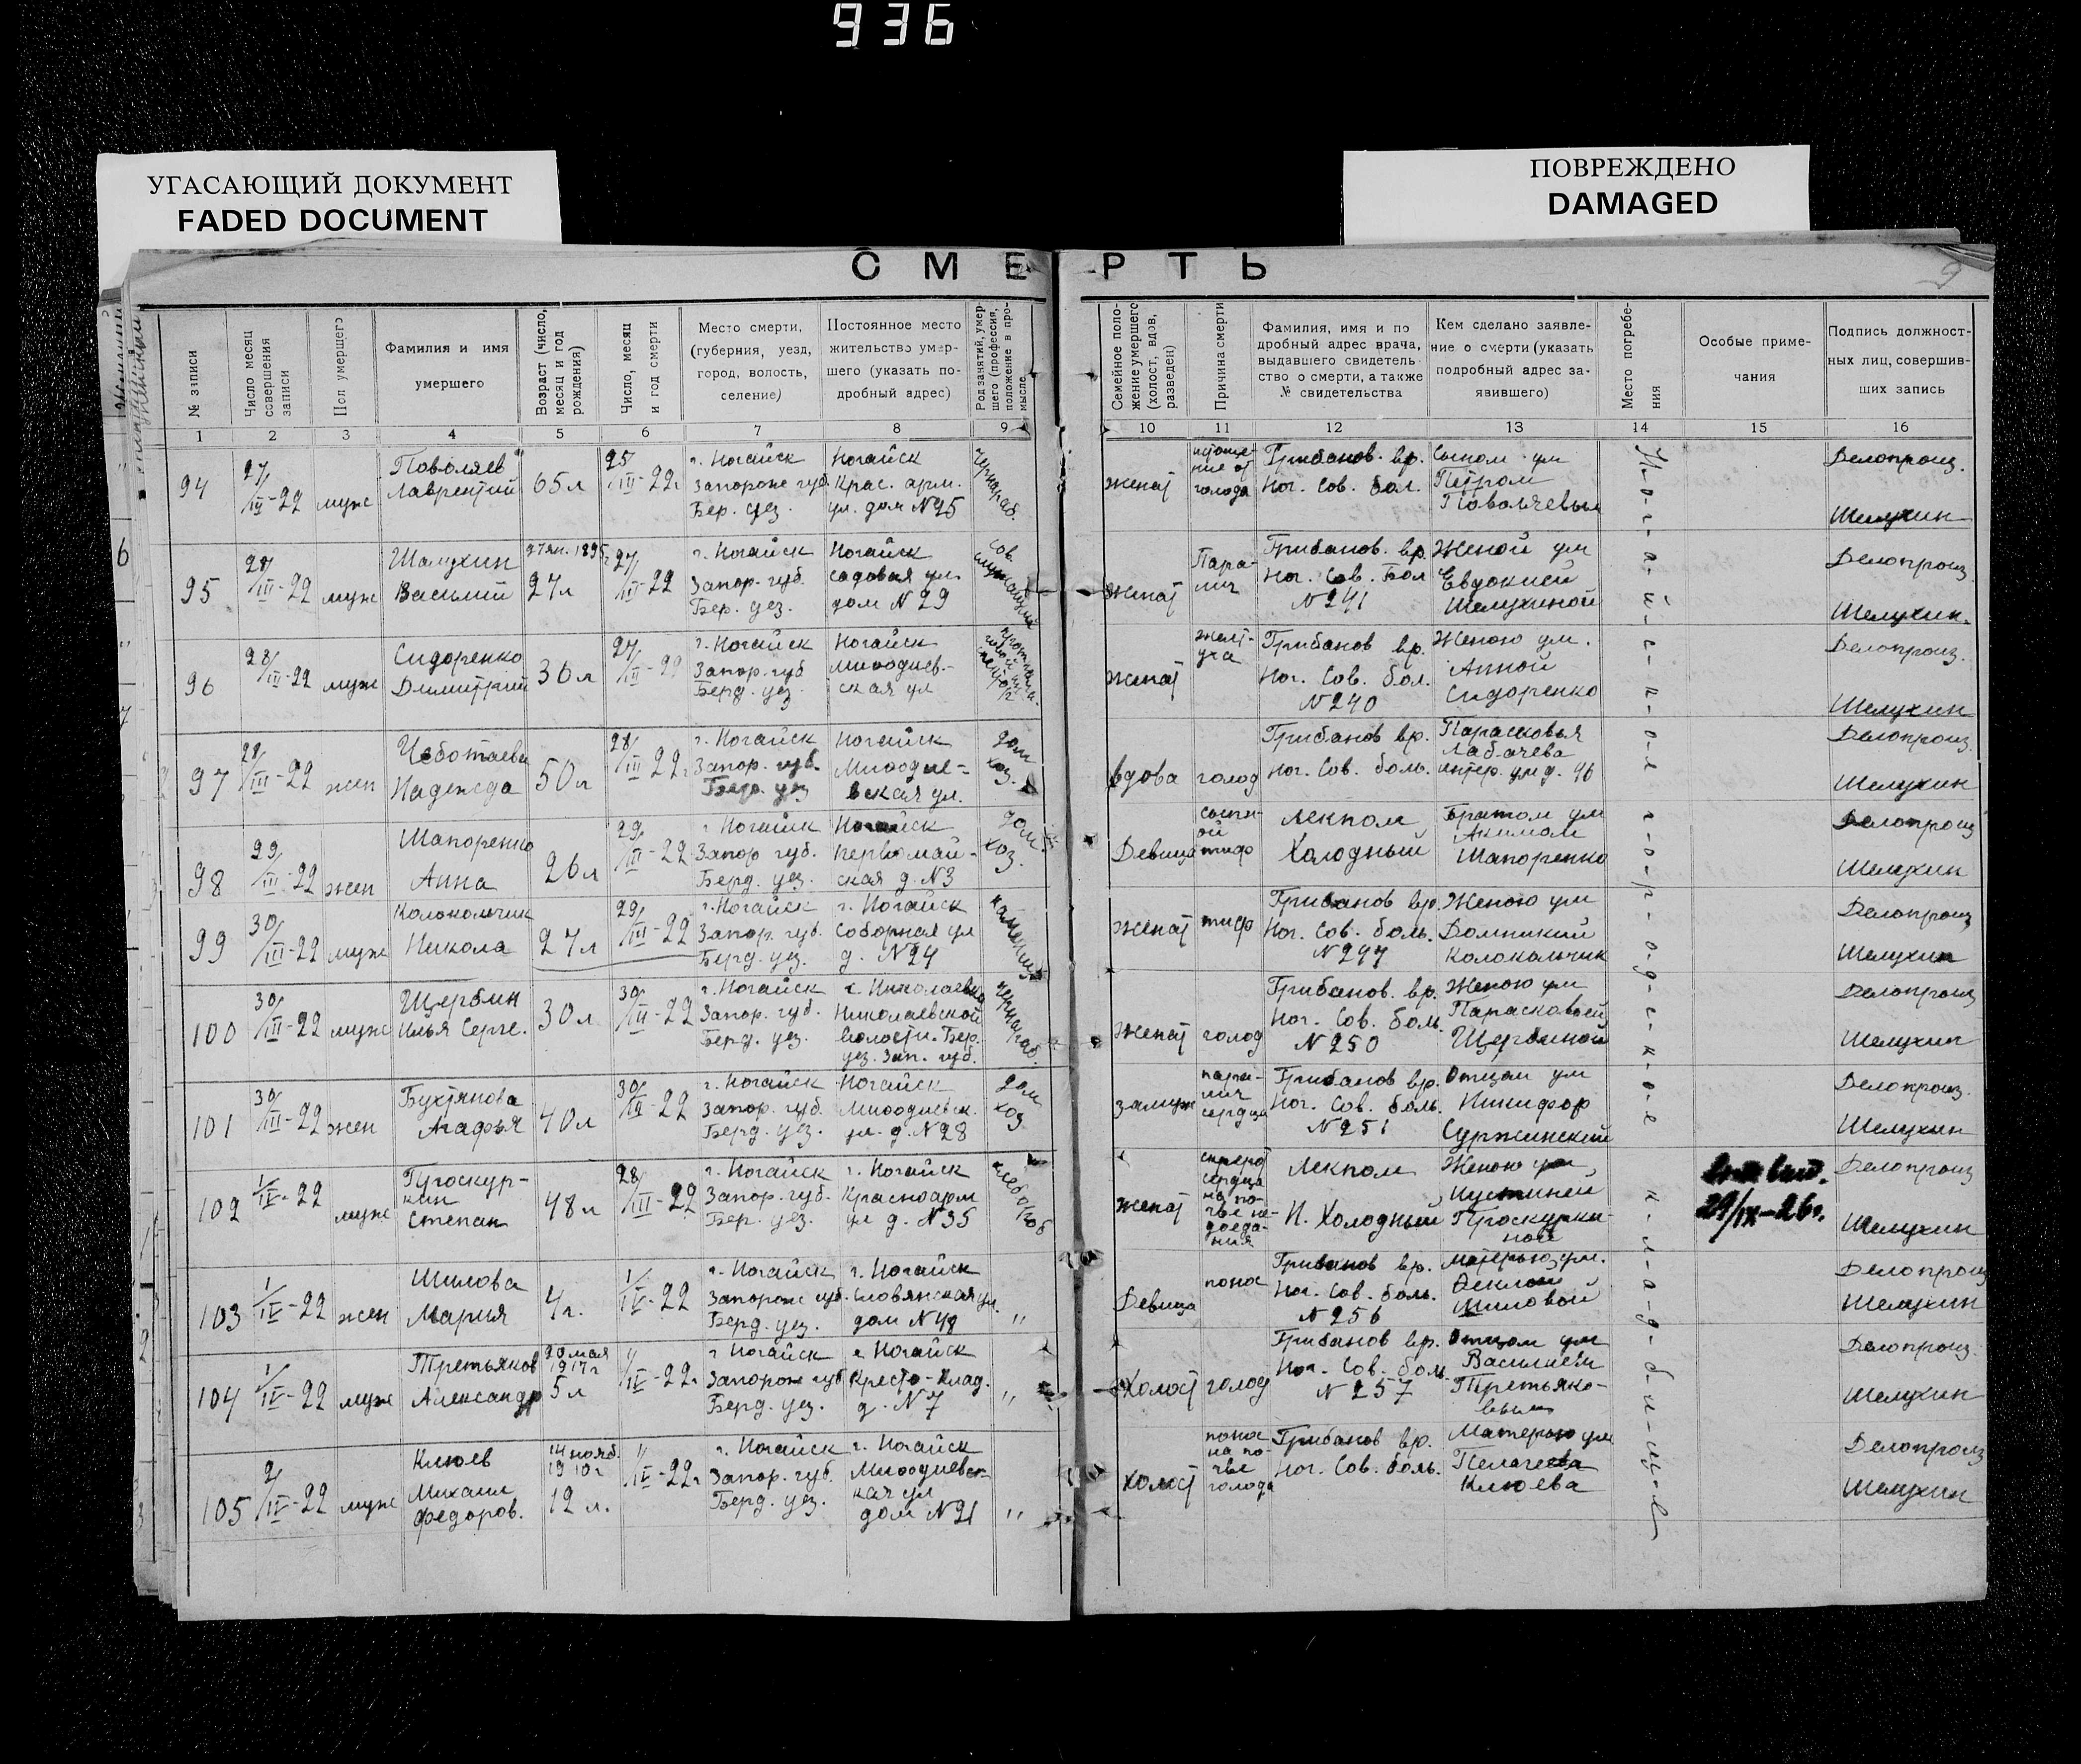 936
УГАСАЮЩИЙ ДОКУМЕНТ
FADED DOCUMENT
ПОВРЕЖДЕНО
DAMAGED
СМЕРТЬ
9
№ записи
Число месяц
совершения
записи
Пол умершего
Фамилия и имя
умершего
Возраст (число,
месяц и год
рождения)
Число, месяц
и год смерти
Место смерти,
(губерния, уезд,
город, волость,
селение)
Постоянное место
жительство умер-
шего (указать по-
дробный адрес)
Род занятий, умер-
шего (профессия,
положение в про-
мысле
Семейное поло-
жение умершего
(холост, вдов,
разведен)
Причина смерти
Фамилия, имя и по
дробный адрес врача,
выдавшего свидетель-
ство о смерти, а также
№ свидетельства
Кем сделано заявле-
ние о смерти (указать
подробный адрес за-
явившего)
Место погребе-
ния
Особые приме-
чания
Подпись должност-
ных лиц, совершив-
ших запись
1 2 3 4 5 6 7 8 9 10 11 12 13 14 15 16
94
27/III-22
муж
Поволяев
Лаврентий
65 л
25/III-22г
г. Ногайск
Запорож губ.
Бер. уез.
Ногайск
Крас. арм.
ул. дом N25
чернораб.
женат
истоще-
ние от
голода
Грибанов. вр.
Ног. Сов. бол.
Сыном ум
Петром
Делопроиз.
Шелухин
95
28/III-22
муж
Шалухин
Василий
27 ян. 1895г
27 л
27/III-22
г. Ногайск
Запор. губ.
Бер. уез.
Ногайск
садовая ул.
дом N29
Сов.
служащий
женат
Пара-
лич
Грибанов. вр.
Ног. Сов. Бол
N241
Женой ум
Евдокией
Шелухиной
Делопроиз
Шелухин.
96
28/III-22
муж
Сидоренко
Димитрий
36 л
27/III-22
г. Ногайск
Запор. губ
Берд. уез
Ногайск
Мисодиев-
ская ул
женат
желт-
уха
Грибанов вр.
Ног. Сов. бол.
N240
Женою ум.
Анной
Сидоренко
Делопроиз.
Шелухин
97
28/III-22
жен
Чеботаева
Надежда
50 л
28/III 22г
г. Ногайск
Запор. губ.
Берд. уез
Ногайск
Мисодие-
вская ул.
дом
хоз.
вдова
голод
Грибанов вр.
Ног. Сов. боль.
Парасковья
Лабачева
интер. ул д. 46
Делопроиз.
Шелухин
98
29/III-22
жен
Шапоренко
Анна
26 л
29/III-22
г Ногайск
Запор губ.
Берд. уез.
Ногайск
первомай-
ская д. N3
дом.
хоз.
Девица
сыпн-
ой
тиф
Лекпом
Холодный
Братом ум
Акимом
Шапоренко
Делопроиз
Шелухин
99
30/III-22
муж
Колокольчик
Никола
27 л
29/III-22
г. Ногайск
Запор. губ.
Берд. уез.
г. Ногайск
Соборная ул
д. N24
каменщик
женат
тиф
Грибанов вр.
Ног. Сов. боль.
N247
Женою ум
Домникий
Колокольчик
Делопроиз
Шелухин
100
30/III-22
муж
Щербин
Илья Серге.
30 л
30/III-22
г. Ногайск
Запор. губ.
Берд. уез.
с. Николаевка
Николаевской
волости. Бер.
уез. Зап. губ.
чернораб.
женат
голод
Грибанов. вр.
Ног. Сов. боль.
N250
Женою ум
Парасковьей
Щербиной
Делопроиз
Шелухин
101
30/III-22
жен
Бухтянова
Агафья
40 л
30/III-22
г. Ногайск
Запор. губ.
Берд. уез.
Ногайск
Мисодиевск.
ул. д. N28
дом
хоз
замуж
пара-
лич
сердца
Грибанов вр.
Ног. Сов. боль.
N251
Отцом ум
Никифор
Суржинский
Делопроиз.
Шелухин
102
1/IV-22
муж
Проскур-
кин
Степан
48 л
28/III-22
г. Ногайск
Запор. губ.
Бер. уез.
г. Ногайск
Красноарм
ул д. N35
хлебороб
женат
сердца
на по-
чве не-
доеда-
ния
Лекпом
И. Холодный
Женою ум,
Иустиней
Проскурки-
ной
29/IX-26г.
Делопроиз
Шелухин
103
1/IV-22
жен
Шилова
Мария
4 г.
1/IV-22
г. Ногайск
Запорож губ.
Берд. уез.
г. Ногайск
Словянская ул.
дом N48
"
Девица
понос
Грибанов вр.
Ног. Сов. боль.
N256
матерью ум.
Феклой
Шиловой
Делопроиз
Шелухин
104
1/IV-22
муж
Третьяков
Александр
20 мая
1917 г
5 л
1/IV-22г
г Ногайск
Запорож губ
Берд. уез.
г. Ногайск
Кресто-Клад.
д. N7
"
Холост
голод
Грибанов вр.
Ног. Сов. боль
N257
Отцом ум
Василием
Третьяко-
вым
Делопроиз.
Шелухин
105
2/IV-22
муж
Клюев
Михаил
Федоров.
14 нояб.
1910г
12 л.
1/IV-22г
г. Ногайск
Запор. губ.
Берд. уез.
г. Ногайск
Мисодиевс-
кая ул
дом N21
"
Холост
понос
на по-
чве
голода
Грибанов вр.
Ног. Сов. боль.
Матерью ум
Пелагеева
Клюева
Делопроиз
Шелухин
Н-о-г-а-й-с-к-о-е г-о-р-о-д-с-к-о-е к-л-а-д-б-и-щ-е